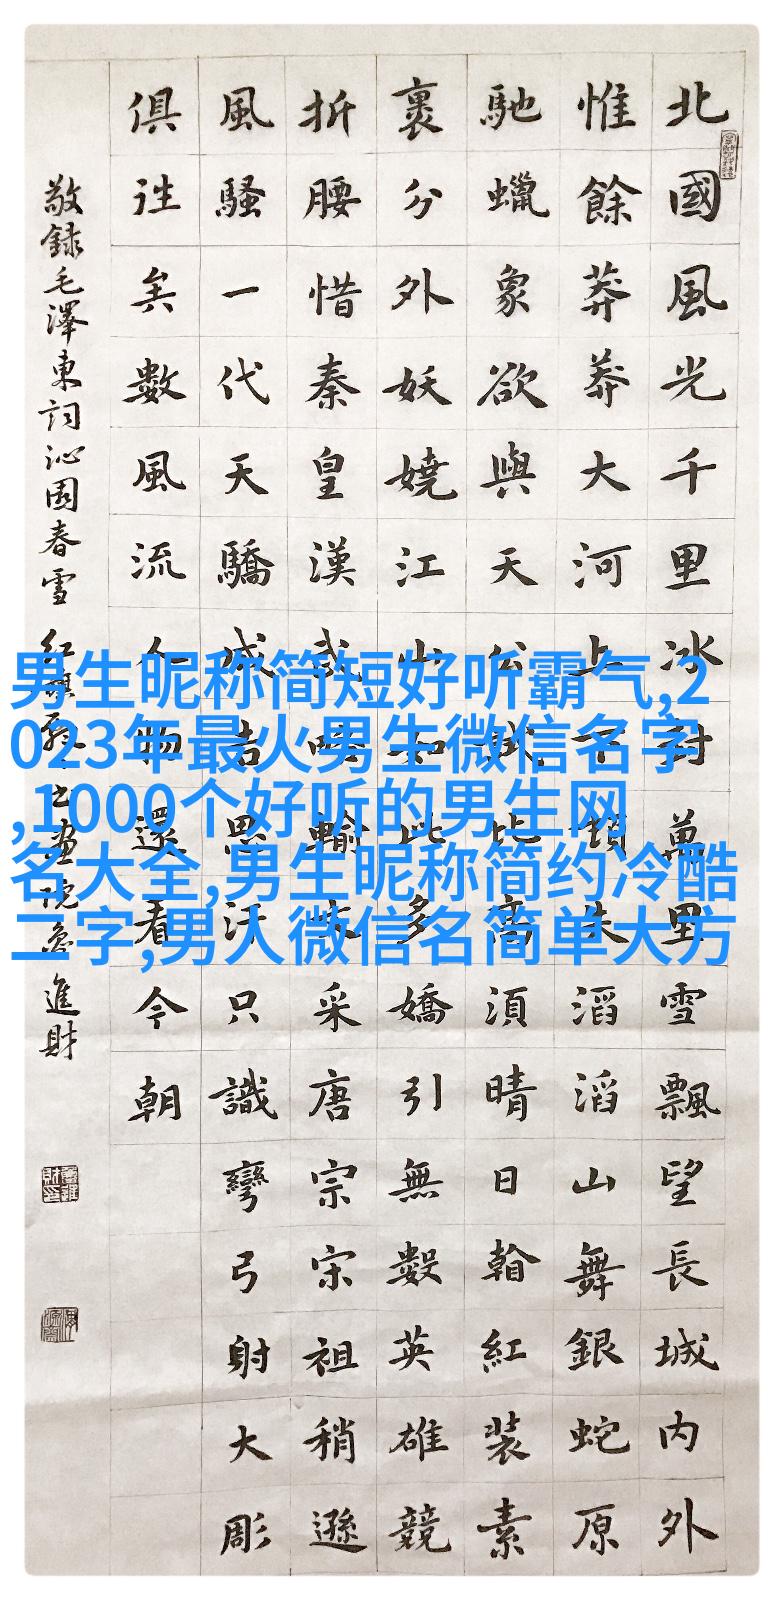 北國風光千里冰封萬里雪飄望長城内外
惟餘莽莽大河上下頓失滔滔山舞銀蛇原
馳蠟象欲與天公試比高須晴日看紅裝素
裹分外妖嬈江山如此多嬌引無數英雄競
折腰惜秦皇漢武略輸文采唐宗宋祖稍遜
風騷一代天驕成吉思汗只識彎弓射大彫
俱往矣數風流人物還看今朝
敬録毛澤東詞沁園春雪 紅旗 書畫院 進財
男生昵称简短好听霸气,2
023年最火男生微信名字
,1000个好听的男生网
名大全,男生昵称简约冷酷
二字,男人微信名简单大方